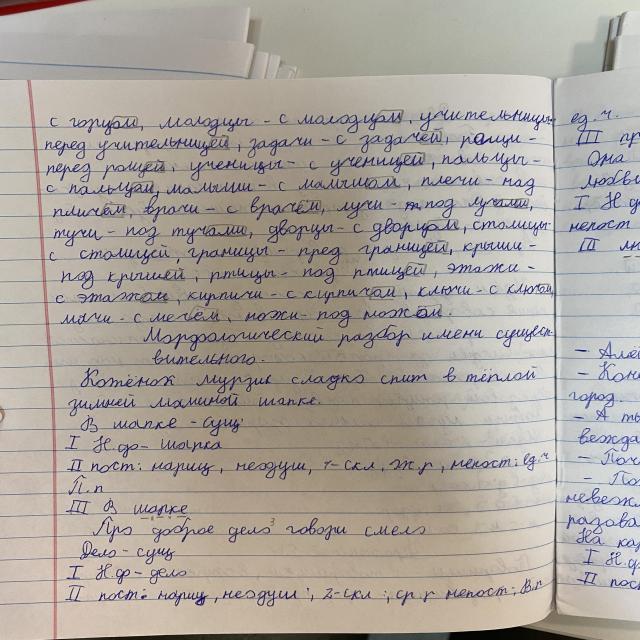 с горцом, молодцы - с молодцом, учительницы-
перед учительницей, задачи - с задачей, рощи-
перед рощей, ученицы - с ученицей, пальцы-
с пальцам, малыши - с малышом, плечи - над
плечём, врачи - с врачём, лучи - под лучами,
тучи - под тучами, дворцы - с дворцом, столицы-
с столицей, границы - пред границей, крыши-
под крышей, птицы - под птицей, этажи-
с этажом, кирпичи - с кирпичом, ключи - с ключом,
мячи - с мечём, ножи - под ножом.
Морфологический разбор имени сущест-
вительного.
Котёнок мурзик сладко спит в тёплой
зимней маминой шапке.
В шапке - сущ
I Н.ф - шапка
II пост: нариц, неодуш, 1-скл, ж.р, непост: ед.ч
П.п
III В шапке
Про доброе дело³ говори смело
Дело - сущ
I Н.ф - дело
II пост: нариц, неодуш, 2-скл, ср.р непост: В.п
ед.ч.
III пр
Она
любви
I Н.ф
непост
III лю
- Алё
- Кон
город.
- А ты
вежда
- Поч
- По
невеж
разова
На ка
I Н.ф
II пост